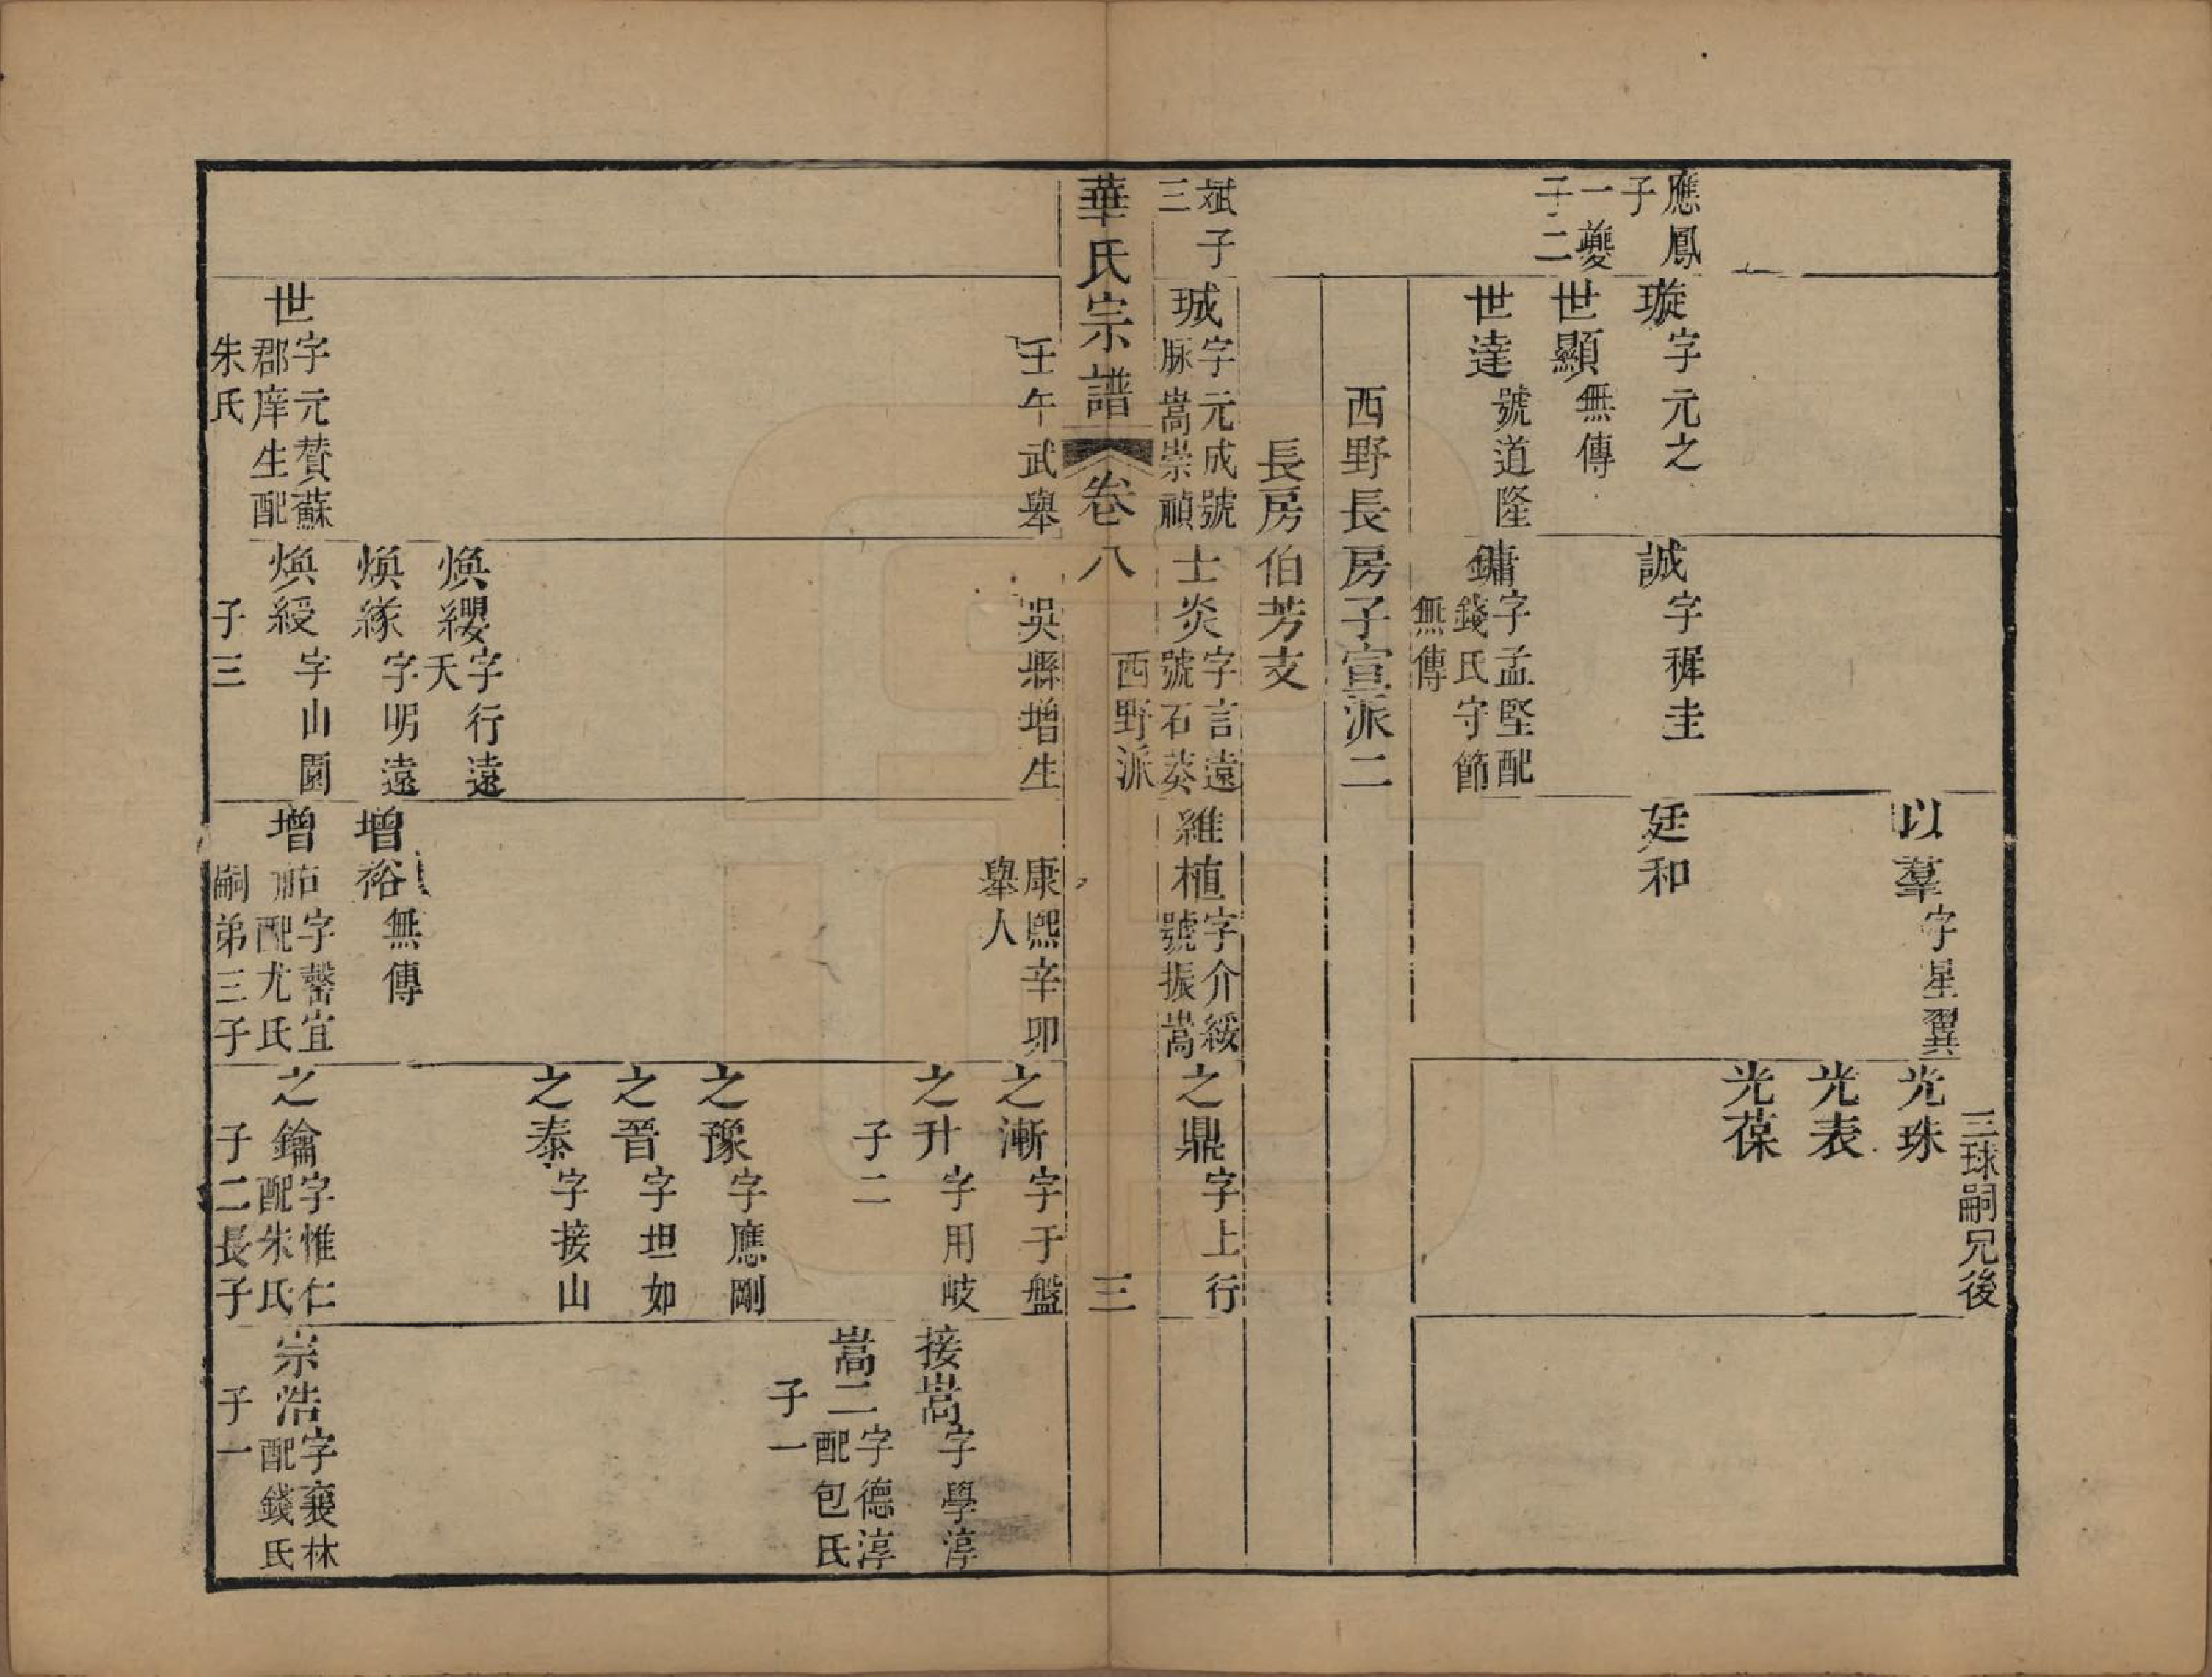 三球嗣兄後
以羣字星翼
光珠
光表
光葆
應鳳子
一夔子二
璇字元之
誠字穉圭
廷和
世顯無傳
世達號道隆
鏞字孟堅配錢氏守節無傳
西野長房子宣派二
長房伯芳支
斌子三
珹字元成號脉嵩崇禎
士炎字言遠號石葵西野派
維植字介綏號振嵩
之鼎字上行
華氏宗譜 卷八 三
壬午武舉
吳縣增生
康熙辛卯舉人
之漸字于盤
之升字用岐子二
接嵩字學淳
嵩二字德淳配包氏子一
之豫字應剛
之晉字坦如
之泰字接山
煥纓字行遠夭
煥緣字明遠
增裕無傳
世字元贊蘇郡庠生配朱氏
煥綬字山園子三
增祐字馨宜配尤氏嗣弟三子
之鑰字惟仁配朱氏子二長子
宗浩字襄林配錢氏子一